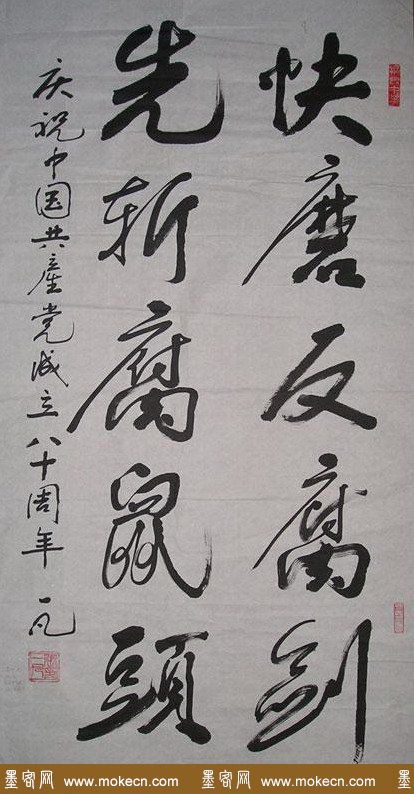 快磨反腐劍
先斩腐鼠頭
庆祝中国共産党成立八十周年 一凡
墨客网 www.mokecn.com 墨客网 www.mokecn.com 墨客网